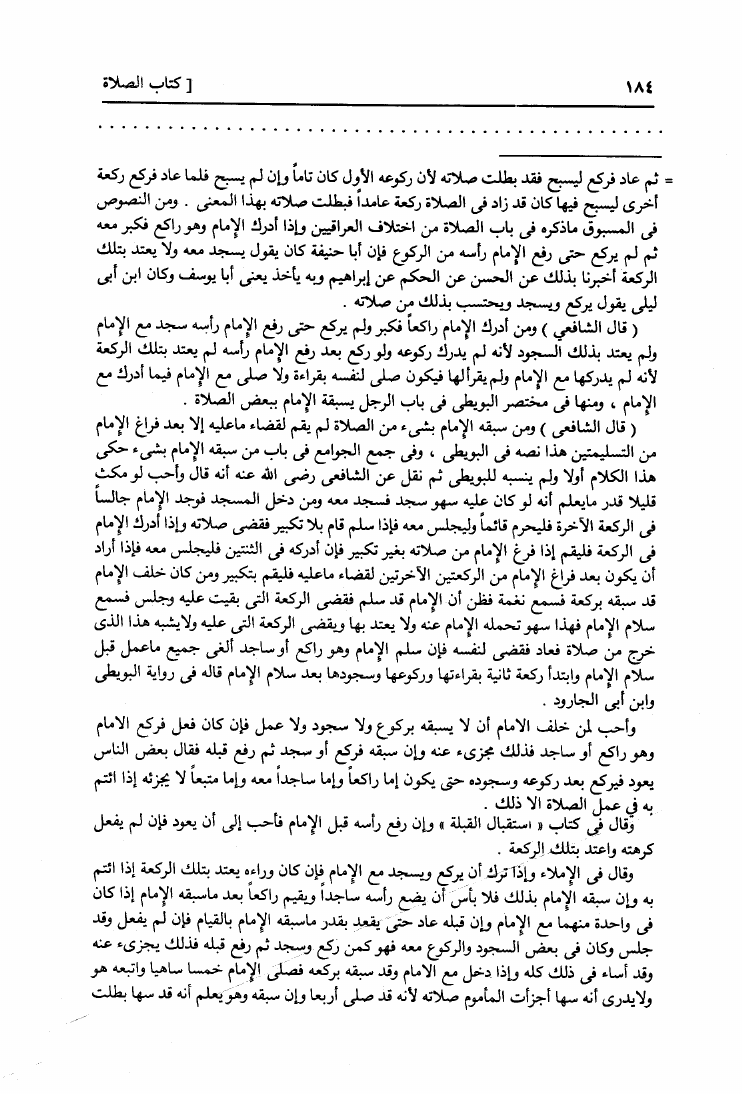 ١٨٤
[ كتاب الصلاة
. . . . . . . . . . . . . . . . . . . . . . . . . . . . . . . . . . . . . . . . . . . . . . .
= ثم عاد فركع ليسبح فقد بطلت صلاته لأن ركوعه الأول كان تاماً وإن لم يسبح فلما عاد فركع ركعة
أخرى ليسبح فيها كان قد زاد فى الصلاة ركعة عامداً فبطلت صلاته بهذا المعنى . ومن النصوص
فى المسبوق ماذكره فى باب الصلاة من اختلاف العراقيين وإذا أدرك الإمام وهو راكع فكبر معه
ثم لم يركع حتى رفع الإمام رأسه من الركوع فإن أبا حنيفة كان يقول يسجد معه ولا يعتد بتلك
الركعة أخبرنا بذلك عن الحسن عن الحكم عن إبراهيم وبه يأخذ يعنى أبا يوسف وكان ابن أبى
ليلى يقول يركع ويسجد ويحتسب بذلك من صلاته .
( قال الشافعي ) ومن أدرك الإمام راكعاً فكبر ولم يركع حتى رفع الإمام رأسه سجد مع الإمام
ولم يعتد بذلك السجود لأنه لم يدرك ركوعه ولو ركع بعد رفع الإمام رأسه لم يعتد بتلك الركعة
لأنه لم يدركها مع الإمام ولم يقرأ لها فيكون صلى لنفسه بقراءة ولا صلى مع الإمام فيما أدرك مع
الإمام ، ومنها فى مختصر البويطى فى باب الرجل يسبقة الإمام ببعض الصلاة .
( قال الشافعي ) ومن سبقه الإمام بشىء من الصلاة لم يقم لقضاء ماعليه إلا بعد فراغ الإمام
من التسليمتين هذا نصه فى البويطى ، وفى جمع الجوامع فى باب من سبقه الإمام بشىء حكى
هذا الكلام أولا ولم ينسبه للبويطى ثم نقل عن الشافعى رضى الله عنه أنه قال وأحب لو مكث
قليلا قدر مايعلم أنه لو كان عليه سهو سجد فسجد معه ومن دخل المسجد فوجد الإمام جالساً
فى الركعة الآخرة فليحرم قائماً وليجلس معه فإذا سلم قام بلا تكبير فقضى صلاته وإذا أدرك الإمام
فى الركعة فليقم إذا فرغ الإمام من صلاته بغير تكبير فإن أدركه فى الثنتين فليجلس معه فإذا أراد
أن يكون بعد فراغ الإمام من الركعتين الآخرتين لقضاء ماعليه فليقم بتكبير ومن كان خلف الإمام
قد سبقه بركعة فسمع نغمة فظن أن الإمام قد سلم فقضى الركعة التى بقيت عليه وجلس فسمع
سلام الإمام فهذا سهو تحمله الإمام عنه ولا يعتد بها ويقضى الركعة التى عليه ولايشبه هذا الذى
خرج من صلاة فعاد فقضى لنفسه فإن سلم الإمام وهو راكع أو ساجد ألغى جميع ماعمل قبل
سلام الإمام وابتدأ ركعة ثانية بقراءتها وركوعها وسجودها بعد سلام الإمام قاله فى رواية البويطى
وابن أبى الجارود .
وأحب لمن خلف الامام أن لا يسبقه بركوع ولا سجود ولا عمل فإن كان فعل فركع الامام
وهو راكع أو ساجد فذلك مجزىء عنه وإن سبقه فركع أو سجد ثم رفع قبله فقال بعض الناس
يعود فيركع بعد ركوعه وسجوده حتى يكون إما راكعاً وإما ساجداً معه وإما متبعاً لا يجزئه إذا ائتم
به في عمل الصلاة الا ذلك .
وقال فى كتاب « استقبال القبلة » وإن رفع رأسه قبل الإمام فأحب إلى أن يعود فإن لم يفعل
كرهته واعتد بتلك الركعة .
وقال فى الإملاء وإذا ترك أن يركع ويسجد مع الإمام فإن كان وراءه يعتد بتلك الركعة إذا ائتم
به وإن سبقه الإمام بذلك فلا بأس أن يضع رأسه ساجداً ويقيم راكعاً بعد ماسبقه الإمام إذا كان
فى واحدة منهما مع الإمام وإن قبله عاد حتى يقعد بقدر ماسبقه الإمام بالقيام فإن لم يفعل وقد
جلس وكان فى بعض السجود والركوع معه فهو كمن ركع وسجد ثم رفع قبله فذلك يجزىء عنه
وقد أساء فى ذلك كله وإذا دخل مع الامام وقد سبقه بركعه فصلى الإمام خمسا ساهيا واتبعه هو
ولايدرى أنه سها أجزأت المأموم صلاته لأنه قد صلى أربعا وإن سبقه وهو يعلم أنه قد سها بطلت